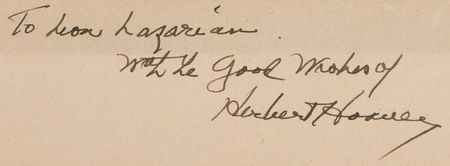 To Leon Lazarian.
With the Good Wishes of
Herbert Hoover